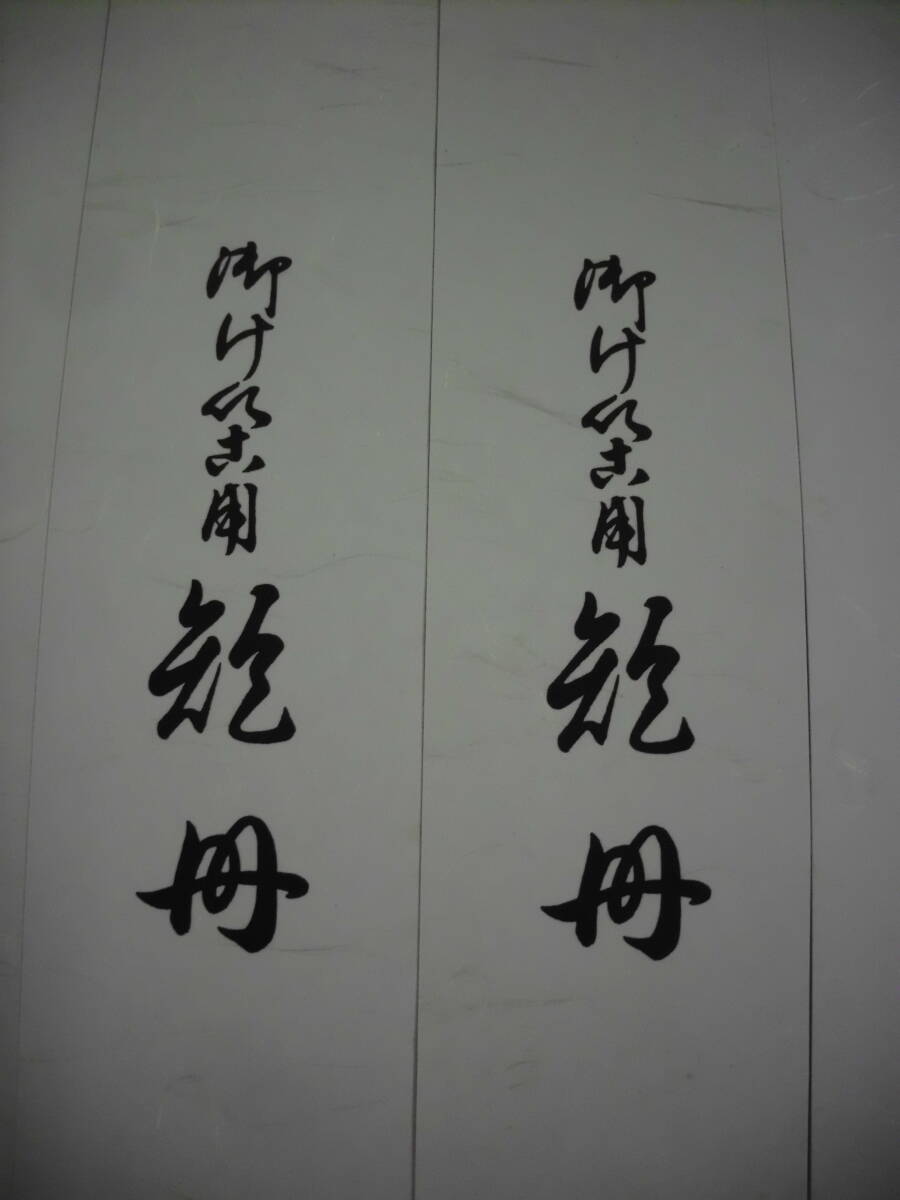 御けいこ用短冊
御けいこ用短冊